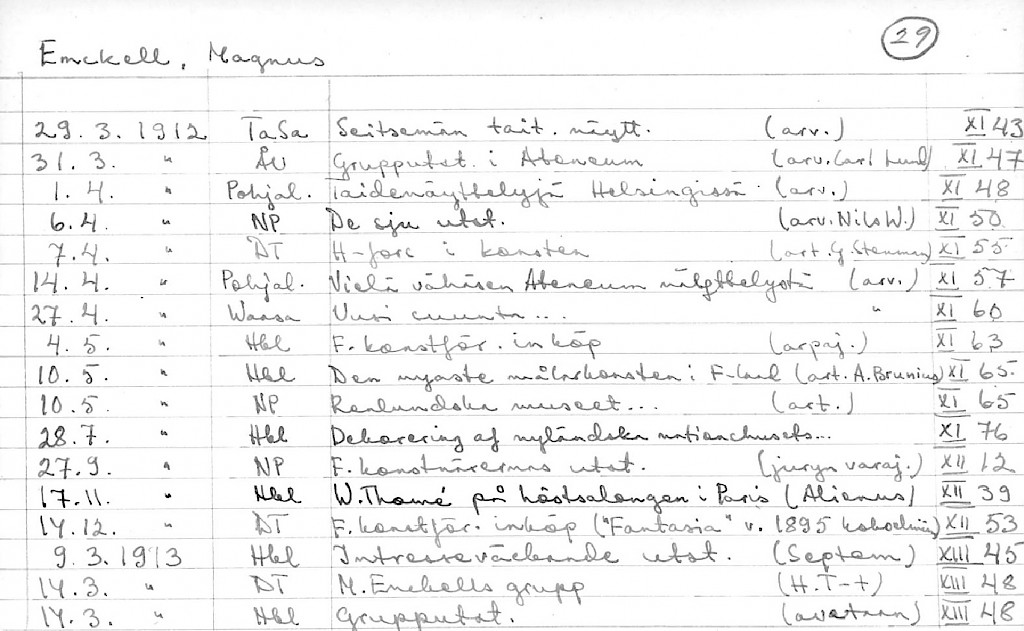 29
Enckell, Magnus
29. 3. 1912 TaSa Seitsemän tait. näytt. (arv.) XI 43
31. 3. " ÅU Grupputst. i Ateneum (arv. Carl Lund) XI 47
1. 4. " Pohjal. Taidenäyttelyjä Helsingissä (arv.) XI 48
6. 4 " NP De sju utst. (arv. Nils W.) XI 50
7. 4. " DT H-fors i konsten (art. G. Stenman) XI 55
14. 4. " Pohjal. Vielä vähäsen Ateneum näyttelystä (arv.) XI 57
27. 4. " Waasa Uusi suunta ... " XI 60
4. 5. " Hbl F. konstför. inköp (arpaj.) XI 63
10. 5. " Hbl Den nyaste målarkonsten i F-land (art. A. Brunius) XI 65
10. 5. " NP Renlundska museet ... (art.) XI 65
28. 7. " Hbl Dekorering af nyländska nationshusets ... XI 76
27. 9. " NP F. konstnärernas utst. (juryn varaj.) XII 12
17. 11. " Hbl W. Thomé på höstsalongen i Paris (Alienus) XII 39
14. 12. " DT F. konstför. inköp ("Fantasia" v. 1895 XII 53
9. 3. 1913 Hbl Intresseväckande utst. (Septem) XIII 45
14. 3. " DT M. Enckells grupp (H. T-t) XIII 48
14. 3. " Hbl Grupputst. (avataan) XIII 48